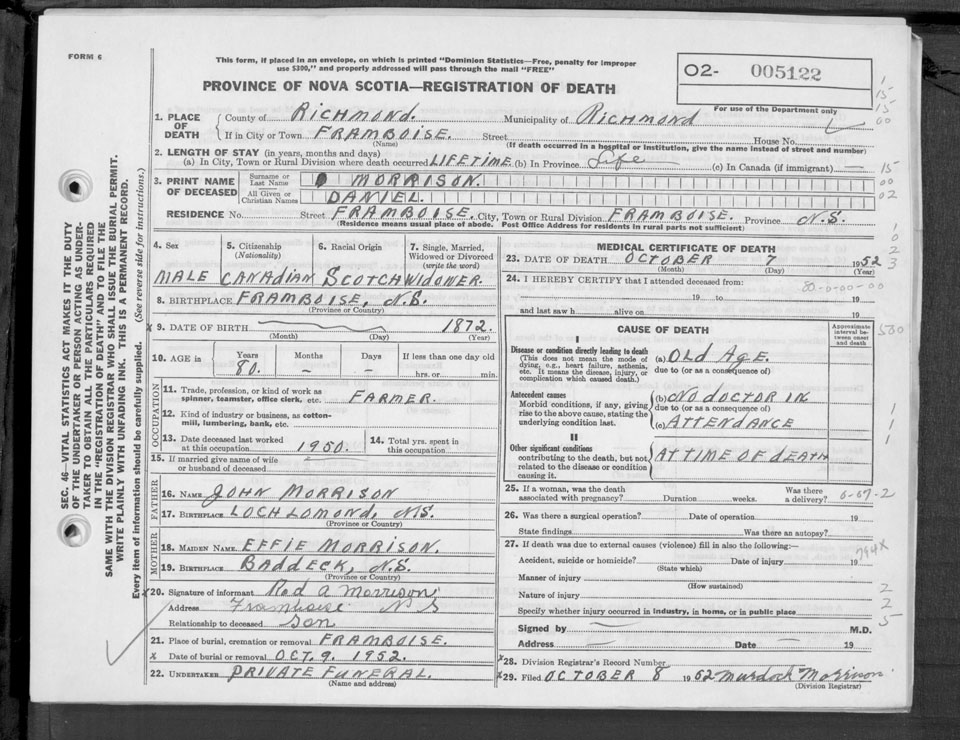 FORM 6
This form, if placed in an envelope, on which is printed "Dominion Statistics—Free, penalty for improper
use $300," and properly addressed will pass through the mail "FREE"
PROVINCE OF NOVA SCOTIA—REGISTRATION OF DEATH
O2- 005122
For use of the Department only
1. PLACE OF DEATH
County of RICHMOND. Municipality of RICHMOND
If in City or Town FRAMBOISE. Street House No.
(Name) (If death occurred in a hospital or institution, give the name instead of street and number)
2. LENGTH OF STAY (in years, months and days)
(a) In City, Town or Rural Division where death occurred LIFETIME. (b) In Province Life (c) In Canada (if immigrant)
3. PRINT NAME OF DECEASED
Surname or Last Name MORRISON.
All Given or Christian Names DANIEL.
RESIDENCE No. Street FRAMBOISE. City, Town or Rural Division FRAMBOISE. Province N.S.
(Residence means usual place of abode. Post Office Address for residents in rural parts not sufficient)
4. Sex 5. Citizenship (Nationality) 6. Racial Origin 7. Single, Married, Widowed or Divorced (write the word)
MALE CANADIAN SCOTCH WIDOWER.
8. BIRTHPLACE FRAMBOISE, N.S.
(Province or Country)
x 9. DATE OF BIRTH 1872.
(Month) (Day) (Year)
10. AGE in Years Months Days If less than one day old
80. – – hrs. or min.
OCCUPATION
11. Trade, profession, or kind of work as
spinner, teamster, office clerk, etc. FARMER.
12. Kind of industry or business, as cotton-
mill, lumbering, bank, etc.
13. Date deceased last worked
at this occupation 1950. 14. Total yrs. spent in
this occupation
15. If married give name of wife
or husband of deceased
FATHER
16. NAME JOHN MORRISON
17. BIRTHPLACE LOCH LOMOND, N.S.
(Province or Country)
MOTHER
18. MAIDEN NAME EFFIE MORRISON.
19. BIRTHPLACE BADDECK, N.S.
(Province or Country)
x 20. Signature of informant Rod A Morrison
Address Framboise N S
Relationship to deceased Son
21. Place of burial, cremation or removal FRAMBOISE.
x Date of burial or removal OCT. 9. 1952.
22. UNDERTAKER PRIVATE FUNERAL.
(Name and address)
MEDICAL CERTIFICATE OF DEATH
23. DATE OF DEATH OCTOBER 7 1952
(Month) (Day) (Year)
24. I HEREBY CERTIFY that I attended deceased from:
80-0-00-00
19 to 19
and last saw h alive on 19
CAUSE OF DEATH
Approximate interval between onset and death
530
I
Disease or condition directly leading to death
(This does not mean the mode of dying, e.g., heart failure, asthenia, etc. It means the disease, injury, or complication which caused death.)
(a) OLD AGE.
due to (or as a consequence of)
Antecedent causes
Morbid conditions, if any, giving rise to the above cause, stating the underlying condition last.
(b) NO DOCTOR IN
due to (or as a consequence of)
(c) ATTENDANCE
II
Other significant conditions
contributing to the death, but not related to the disease or condition causing it.
AT TIME OF DEATH
25. If a woman, was the death
associated with pregnancy? Duration weeks. Was there
a delivery?
26. Was there a surgical operation? Date of operation 19
State findings Was there an autopsy?
27. If death was due to external causes (violence) fill in also the following:—
Accident, suicide or homicide? Date of injury 19
(State which)
794X
Manner of injury
(How sustained)
Nature of injury
Specify whether injury occurred in industry, in home, or in public place
Signed by M.D.
Address Date 19
x 28. Division Registrar's Record Number
x 29. Filed OCTOBER 8 1952 Murdock Morrison
(Division Registrar)
SEC. 46—VITAL STATISTICS ACT MAKES IT THE DUTY
OF THE UNDERTAKER OR PERSON ACTING AS UNDER-
TAKER TO OBTAIN ALL THE PARTICULARS REQUIRED
IN THE "REGISTRATION OF DEATH" AND TO FILE THE
SAME WITH THE DIVISION REGISTRAR WHO SHALL ISSUE THE BURIAL PERMIT.
WRITE PLAINLY WITH UNFADING INK. THIS IS A PERMANENT RECORD.
Every item of information should be carefully supplied. (See reverse side for instructions.)